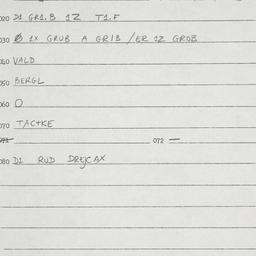 020 D1 GR1.B 1Z T1.F
030 Ø 1X GRUB A GRIB /ER 1Z GROB
040 VALD
050 BERGL
060 O
070 TACTKE
071 — 072 —
080 D1 RUD DREJCAX